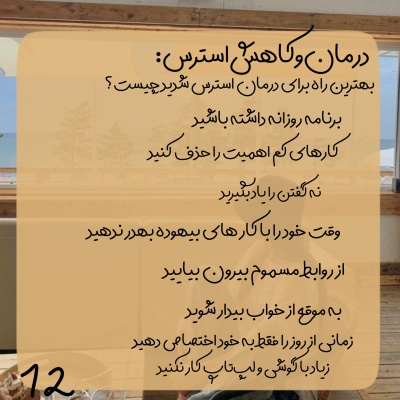 درمان و کاهش استرس:
بهترین راه برای درمان استرس شدید چیست؟
برنامه روزانه داشته باشید
کارهای کم اهمیت را حذف کنید
نه گفتن را یاد بگیرید
وقت خود را با کار های بیهوده بهدر ندهید
از روابط مسموم بیرون بیایید
به موقع از خواب بیدار شوید
زمانی از روز را فقط به خود اختصاص دهید
زیاد با گوشی و لپ تاپ کار نکنید
12